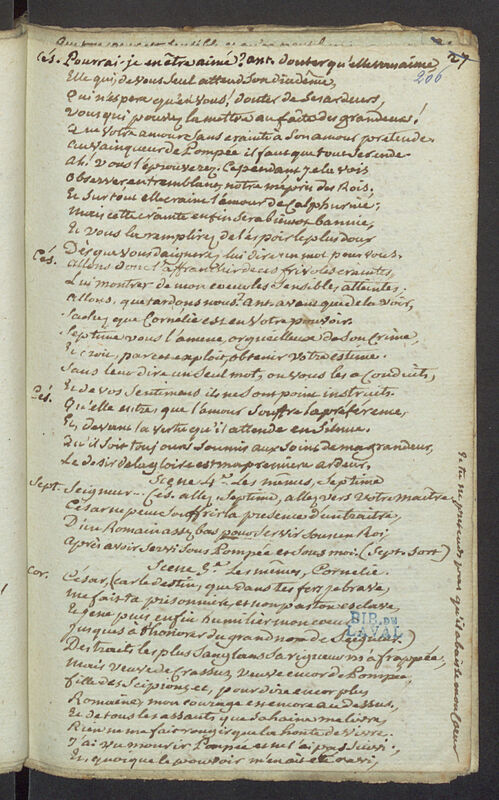 27
206
Cés. Pourrai-je en être aimé? Ant. douter qu'elle vous aime,
Elle qui de vous seul attend son diadême,
Qui n'espère qu'en vous! douter de ses ardeurs,
Vous qui pouvez la mettre au faîte des grandeurs!
Que votre amour sans crainte à son amour prétende.
Au vainqueur de Pompée il faut que tout se rende.
Ah! vous l'éprouverez. Cependant je la vois
Observer en tremblant notre mépris des Rois.
Et surtout elle craint l'amour de Calphurnie;
Mais cette crainte enfin sera bientôt bannie,
Et vous la remplirez de l'espoir le plus doux
Dès que vous daignerez lui dire un mot pour vous.
Cés. Allons donc l'affranchir de ces frivoles craintes,
Lui montrer de mon coeur les sensibles atteintes.
Allons, que tardons nous? Ant. avant que de la voir,
Sachez que Cornelie est en votre pouvoir.
Septime vous l'amene, orgueilleux de son crime,
Et croit, par cet exploit, obtenir votre estime.
Sans leur dire un seul mot, on vous les a conduits,
Et de vos sentimens ils ne sont point instruits.
Cés. Qu'elle entre, que l'amour souffre la préférence,
Et, devant la vertu qu'il attende en silence.
Qu'il soit toujours soumis aux soins de ma grandeur,
Le desir de la gloire est ma première ardeur.
Scene 4e. Les mêmes, Septime
Sept. Seigneur... Cés. allez, Septime, allez vers votre maître,
César ne peut souffrir la presence d'un traitre,
D'un Romain assez bas pour servir sous un Roi
Après avoir servi sous Pompée et sous moi. (Sept. sort)
Scene 5e. Les mêmes, Cornelie.
Cor. César, (car le destin, que dans tes fers je brave,
Me fait ta prisonniere, et non pas ton esclave,
Et tu ne pretends pas qu'il abaisse mon coeur
Jusques à t'honorer du grand nom de Seigneur.)
Des traits les plus sanglans sa rigueur m'a frappée,
Mais veuve de Crassus, veuve encor de Pompée,
fille des Scipions, et, pour dire encor plus
Romaine, mon courage est encore au dessus,
Et de tous les assauts que sa haine me livre,
Rien ne me fait rougir que la honte de vivre.
J'ai vu mourir Pompée et ne l'ai pas suivi;
Et, quoique le pouvoir m'en ait été ravi,
BIB. DE
LAVAL